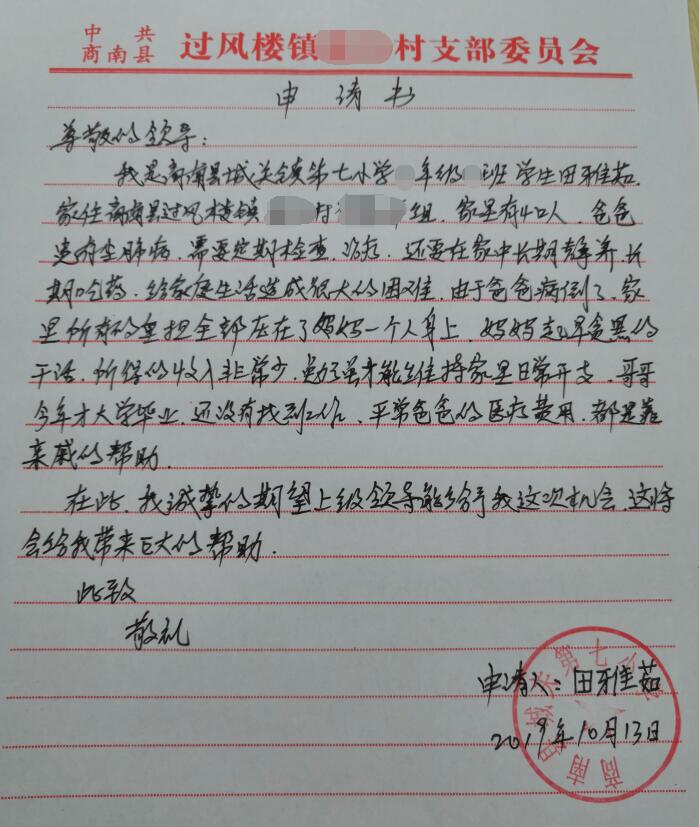 中共
商南县
过风楼镇 村支部委员会
申请书
尊敬的领导：
我是商南县城关镇第七小学 年级 班学生田雅茹.
家住商南县过风楼镇 村 组，家里有4口人，爸爸
患有尘肺病，需要定期检查，治疗，还要在家中长期静养，长
期吃药，给家庭生活造成很大的困难，由于爸爸病倒了，家
里所有的重担全部压在了妈妈一个人身上，妈妈起早贪黑的
干活，所得的收入非常少，勉强才能维持家里日常开支，哥哥
今年才大学毕业，还没有找到工作，平常爸爸的医疗费用，都是靠
亲戚的帮助.
在此，我诚挚的期望上级领导能给予我这次机会，这将
会给我带来巨大的帮助.
此致
敬礼
申请人：田雅茹
2019年10月13日
商南县城关第七小学